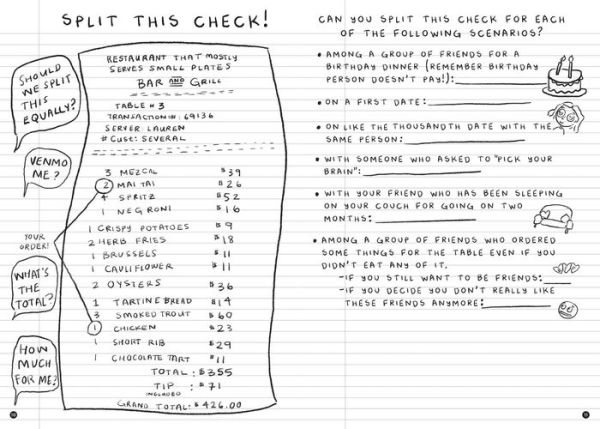 SPLIT THIS CHECK!
SHOULD
WE SPLIT
THIS
EQUALLY?
VENMO
ME?
YOUR
ORDER!
WHAT'S
THE
TOTAL?
HOW
MUCH
FOR ME?
RESTAURANT THAT MOSTLY
SERVES SMALL PLATES
BAR AND GRILL
TABLE # 3
TRANSACTION #: 69136
SERVER LAUREN
# CUST: SEVERAL
3 MEZCAL $39
2 MAI TAI $26
4 SPRITZ $52
1 NEGRONI $16
1 CRISPY POTATOES $9
2 HERB FRIES $18
1 BRUSSELS $11
1 CAULIFLOWER $11
2 OYSTERS $36
1 TARTINE BREAD $14
3 SMOKED TROUT $60
1 CHICKEN $23
1 SHORT RIB $29
1 CHOCOLATE TART $11
TOTAL: $355
TIP : $71
INCLUDED
GRAND TOTAL: $426.00
CAN YOU SPLIT THIS CHECK FOR EACH
OF THE FOLLOWING SCENARIOS?
• AMONG A GROUP OF FRIENDS FOR A
BIRTHDAY DINNER (REMEMBER BIRTHDAY
PERSON DOESN'T PAY!):
• ON A FIRST DATE:
• ON LIKE THE THOUSANDTH DATE WITH THE
SAME PERSON:
• WITH SOMEONE WHO ASKED TO "PICK YOUR
BRAIN":
• WITH YOUR FRIEND WHO HAS BEEN SLEEPING
ON YOUR COUCH FOR GOING ON TWO
MONTHS:
• AMONG A GROUP OF FRIENDS WHO ORDERED
SOME THINGS FOR THE TABLE EVEN IF YOU
DIDN'T EAT ANY OF IT.
-IF YOU STILL WANT TO BE FRIENDS:
-IF YOU DECIDE YOU DON'T REALLY LIKE
THESE FRIENDS ANYMORE: